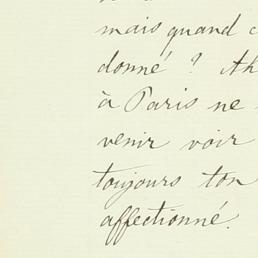 mais quand
donné ? Ah
à Paris ne
venir voir
toujours ton
affectionné.